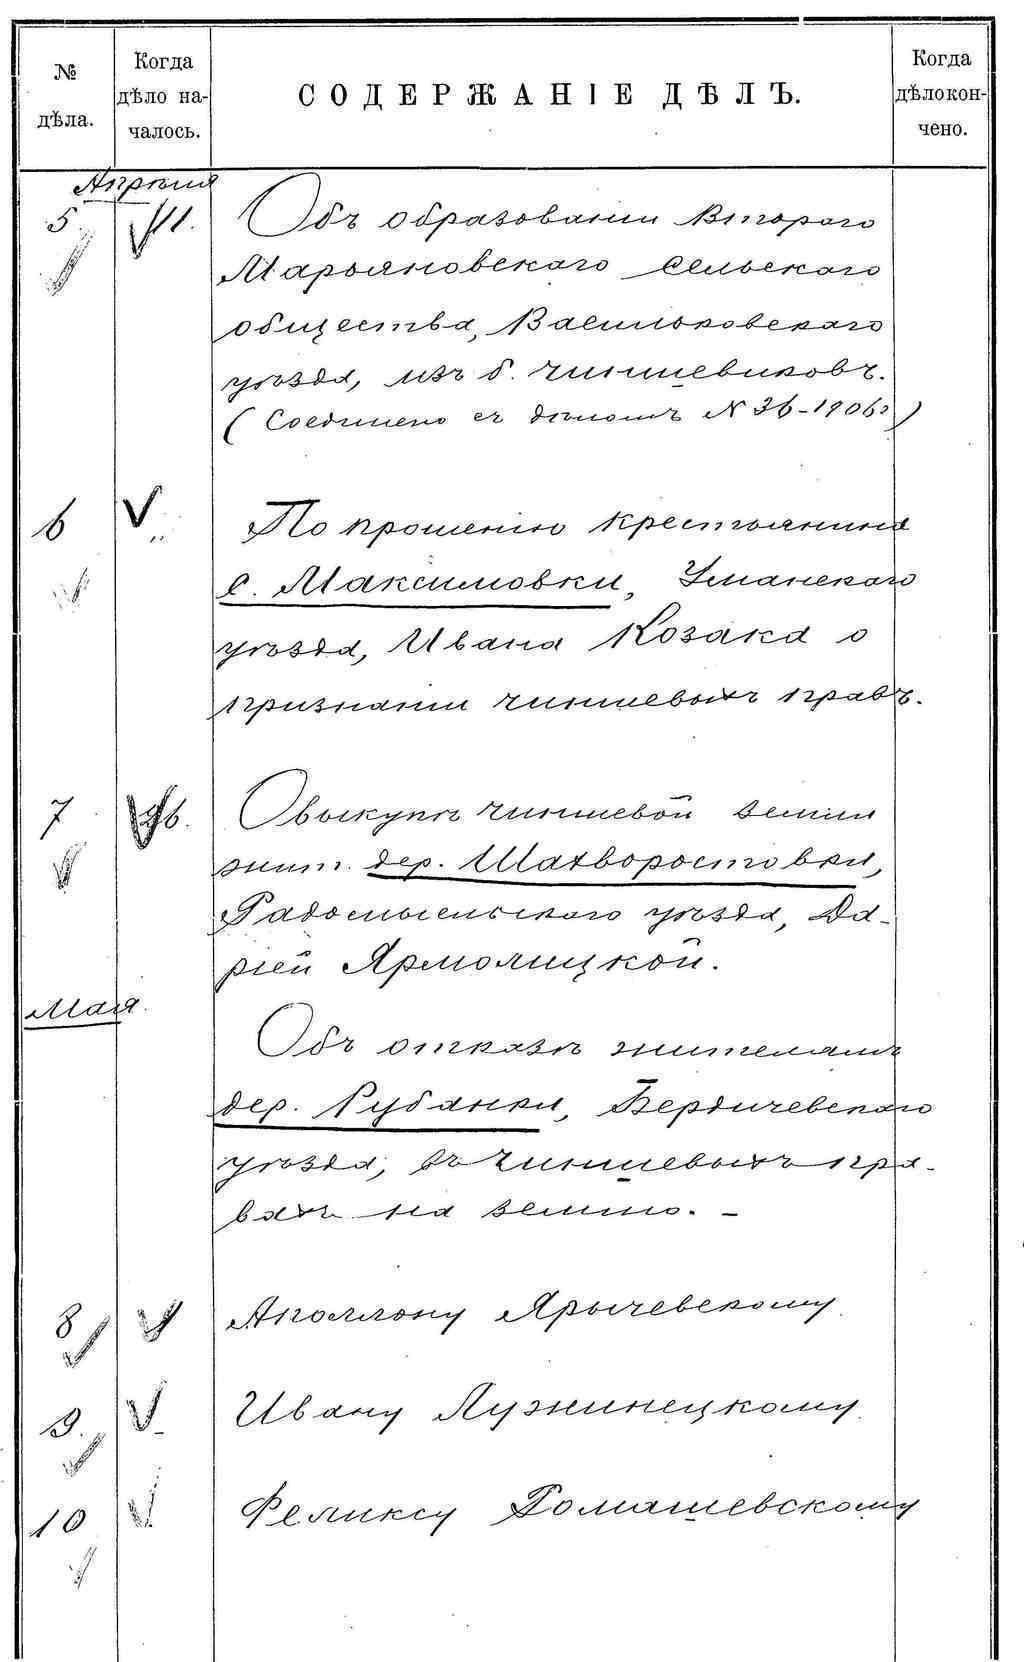 № дѣла.
Когда дѣло на-чалось.
СОДЕРЖАНІЕ ДѢЛЪ.
Когда дѣло кон-чено.
Апрѣля
5. 11. Объ образованіи Второго
Марьяновскаго Сельскаго
общества, Васильковскаго
уѣзда, изъ б. чиншевиковъ.
(Соединено съ дѣломъ № 36-1906 г)
6 По прошенію крестьянина
с. Максимовки, Уманскаго
уѣзда, Ивана Козака о
признаніи чиншевыхъ правъ.
7 26. О выкупѣ чиншевой земли
жит. дер. Шахворостовки,
Радомысльскаго уѣзда, Да-
ріей Ярмолицкой.
Мая.
Объ отказѣ жителямъ
дер. Рубанки, Бердичевскаго
уѣзда, въ чиншевыхъ пра-
вахъ на землю. –
8 Аполлону Ярычевскому.
9. Ивану Лужинецкому.
10 Феликсу Ромашевскому